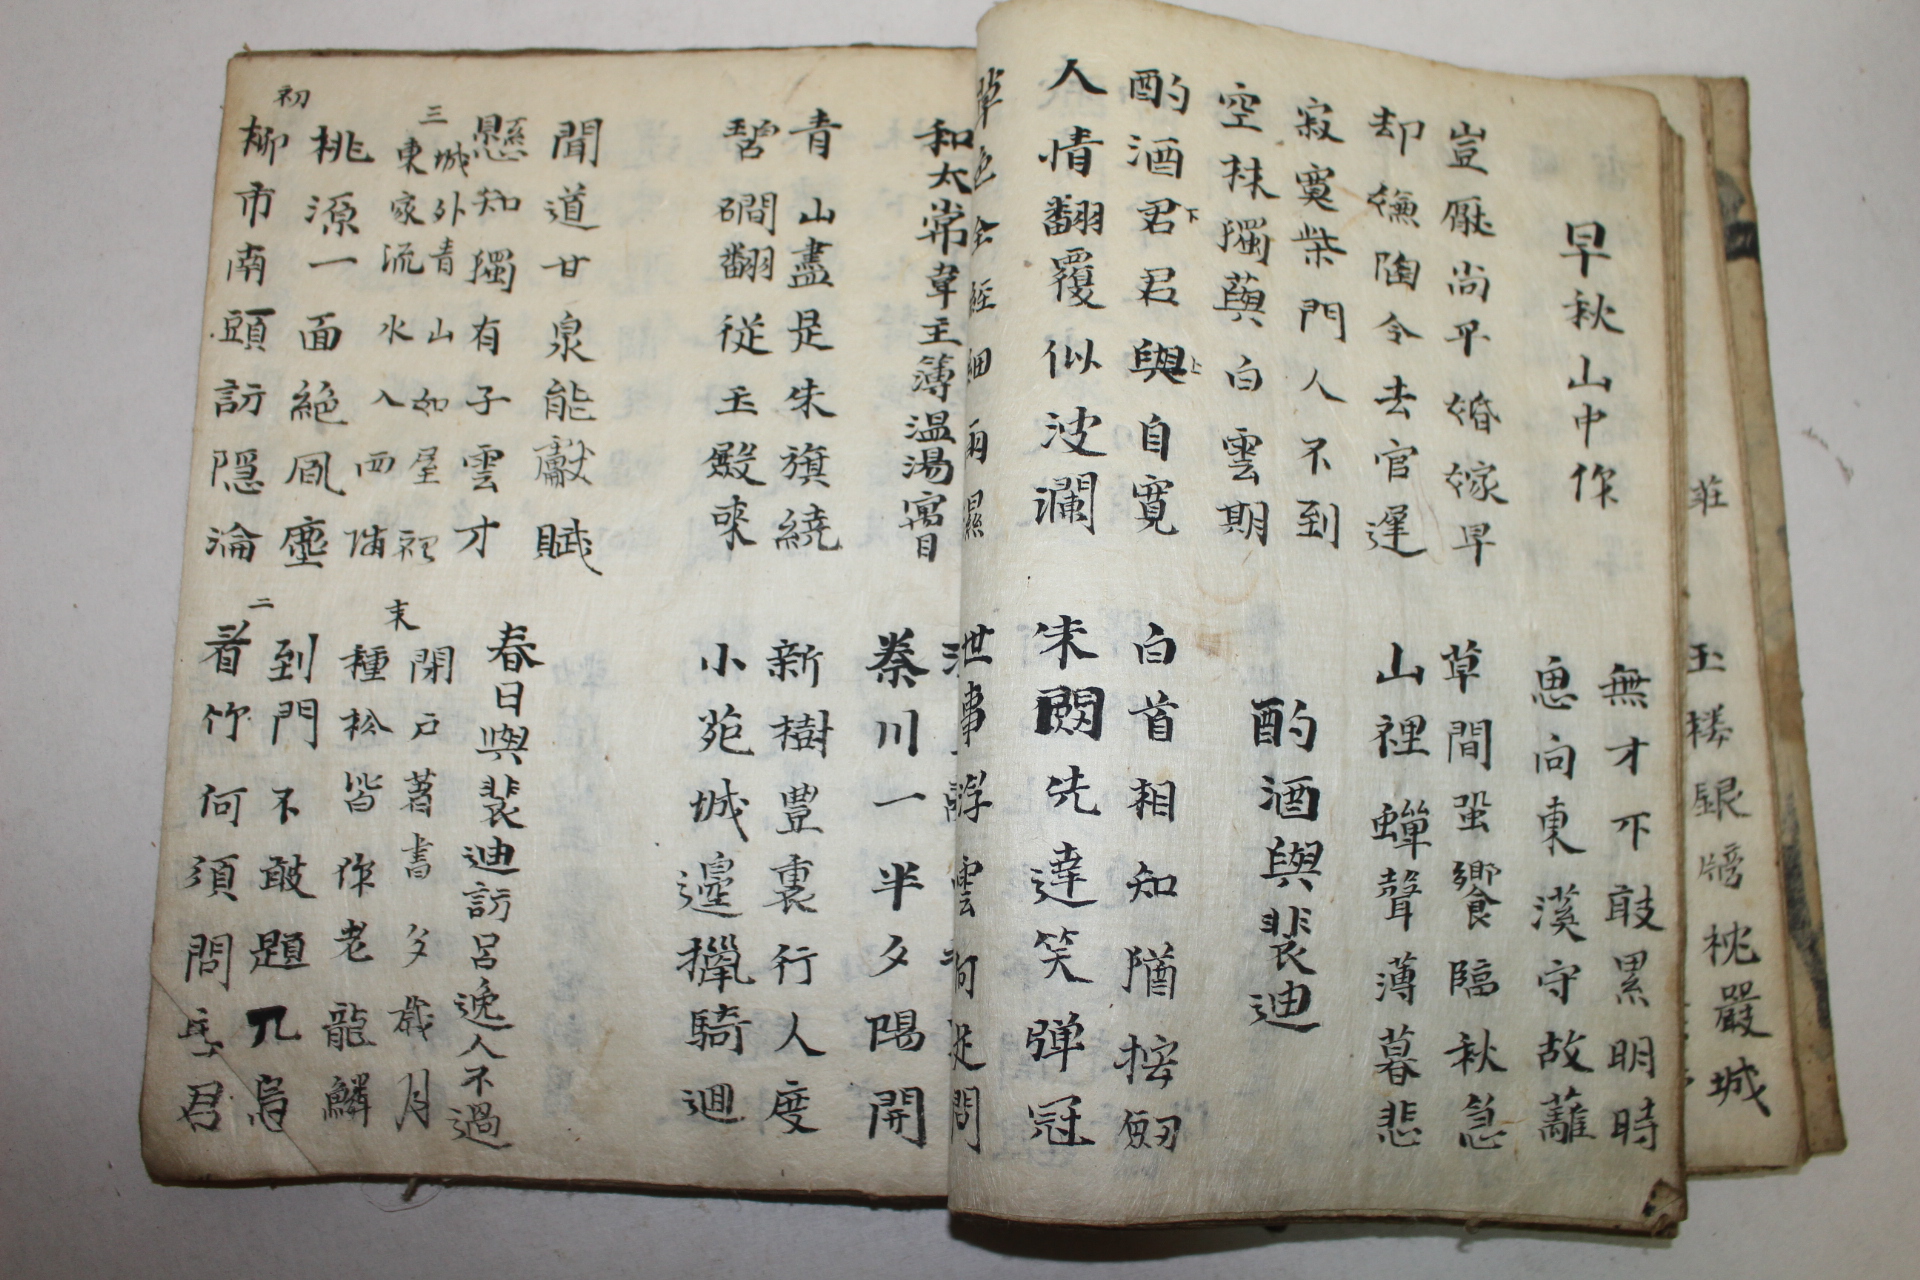 莊
玉楼銀牓枕嚴城
早秋山中作
無才不敢累明時
思向東溪守故蘺
豈厭尚平婚嫁早
却嫌陶令去官遲
草間蛩響臨秋急
山裡蟬聲薄暮悲
寂寞柴門人不到
空林獨與白雲期
酌酒與裴迪
酌酒君下君與上自寛
人情翻覆似波瀾
白首相知猶按劒
朱先達笑弾冠
草色全經細雨濕
世事浮雲何足問
和太常韋主簿温湯寓目
秦川一半夕陽開
青山盡是朱旗繞
碧澗翻従玉殿來
新樹豐裏行人度
小苑城邊獵騎迴
聞道甘泉能獻賦
懸知獨有子雲才
春日與裴迪訪呂逸人不過
三
城外青山如屋裡
東家流水入西隣
末
閉戶著書多歲月
種松皆作老龍鱗
初
桃源一面絶風塵
柳市南頭訪隠淪
二
到門不敢題凡鳥
看竹何須問主君